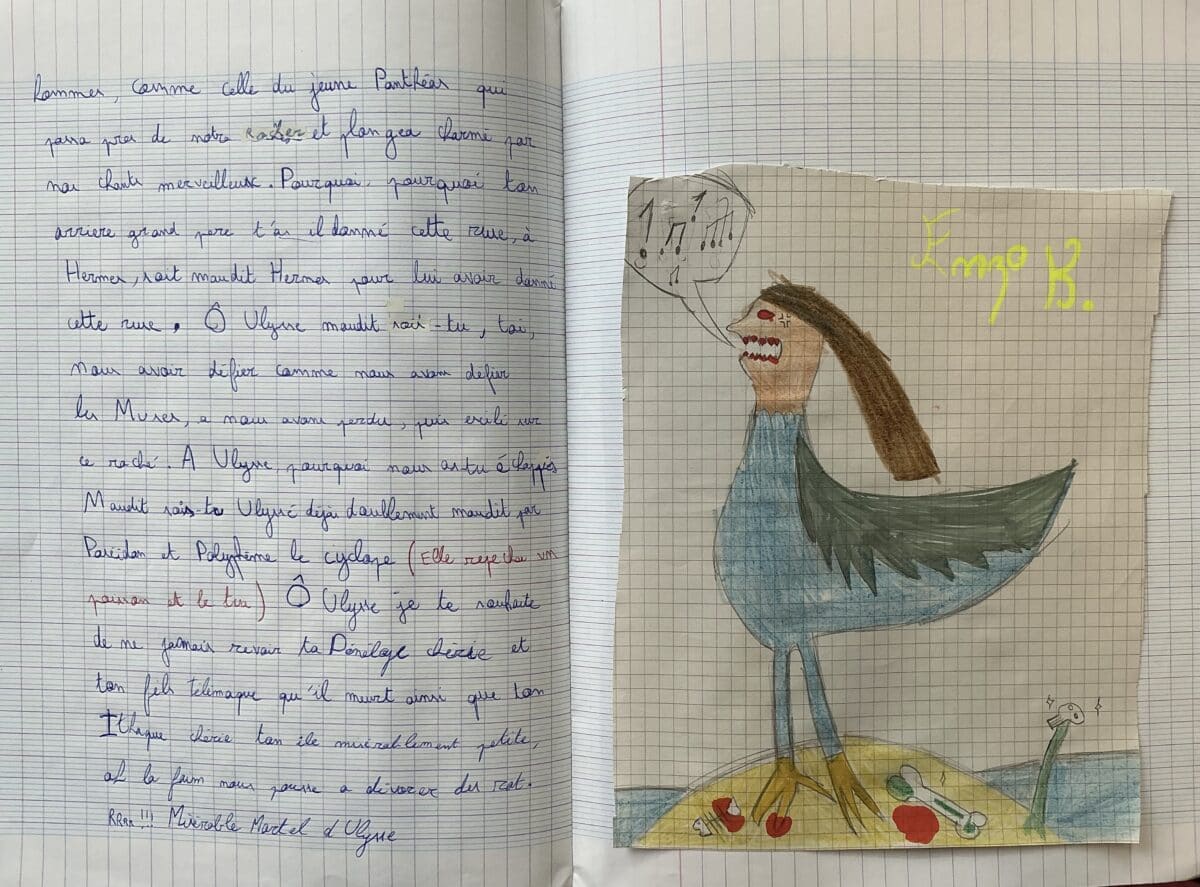 hommes, comme celle du jeune Panthéas qui
passa pres de notre rocher et plongea charmé par
nos chants merveilleuse. Pourquoi, pourquoi ton
arriere grand pere t'as il donné cette ruse, à
Hermes, soit maudit Hermes pour lui avoir donné
cette ruse. Ô Ulysse maudit soit-tu, toi,
nous avoir défier comme nous avons defier
les Muses, e nous avons perdu, puis exilé sur
ce roché. A Ulysse, pourquoi nous as tu échappés
Maudit sois-tu Ulysse déjà doublement maudit par
Poséidon et Polyphème le cyclope (Elle un
poisson et le tue) Ô Ulysse je te souhaite
de ne jamais revoir ta Pénélope chérie et
ton fils Télémaque qu'il meurt ainsi que ton
Ithaque chérie ton île misérablement petite,
ah la faim nous pousse a dévorer des rat.
RRRR !!! Misérable Mortel d'Ulysse
Enzo B.